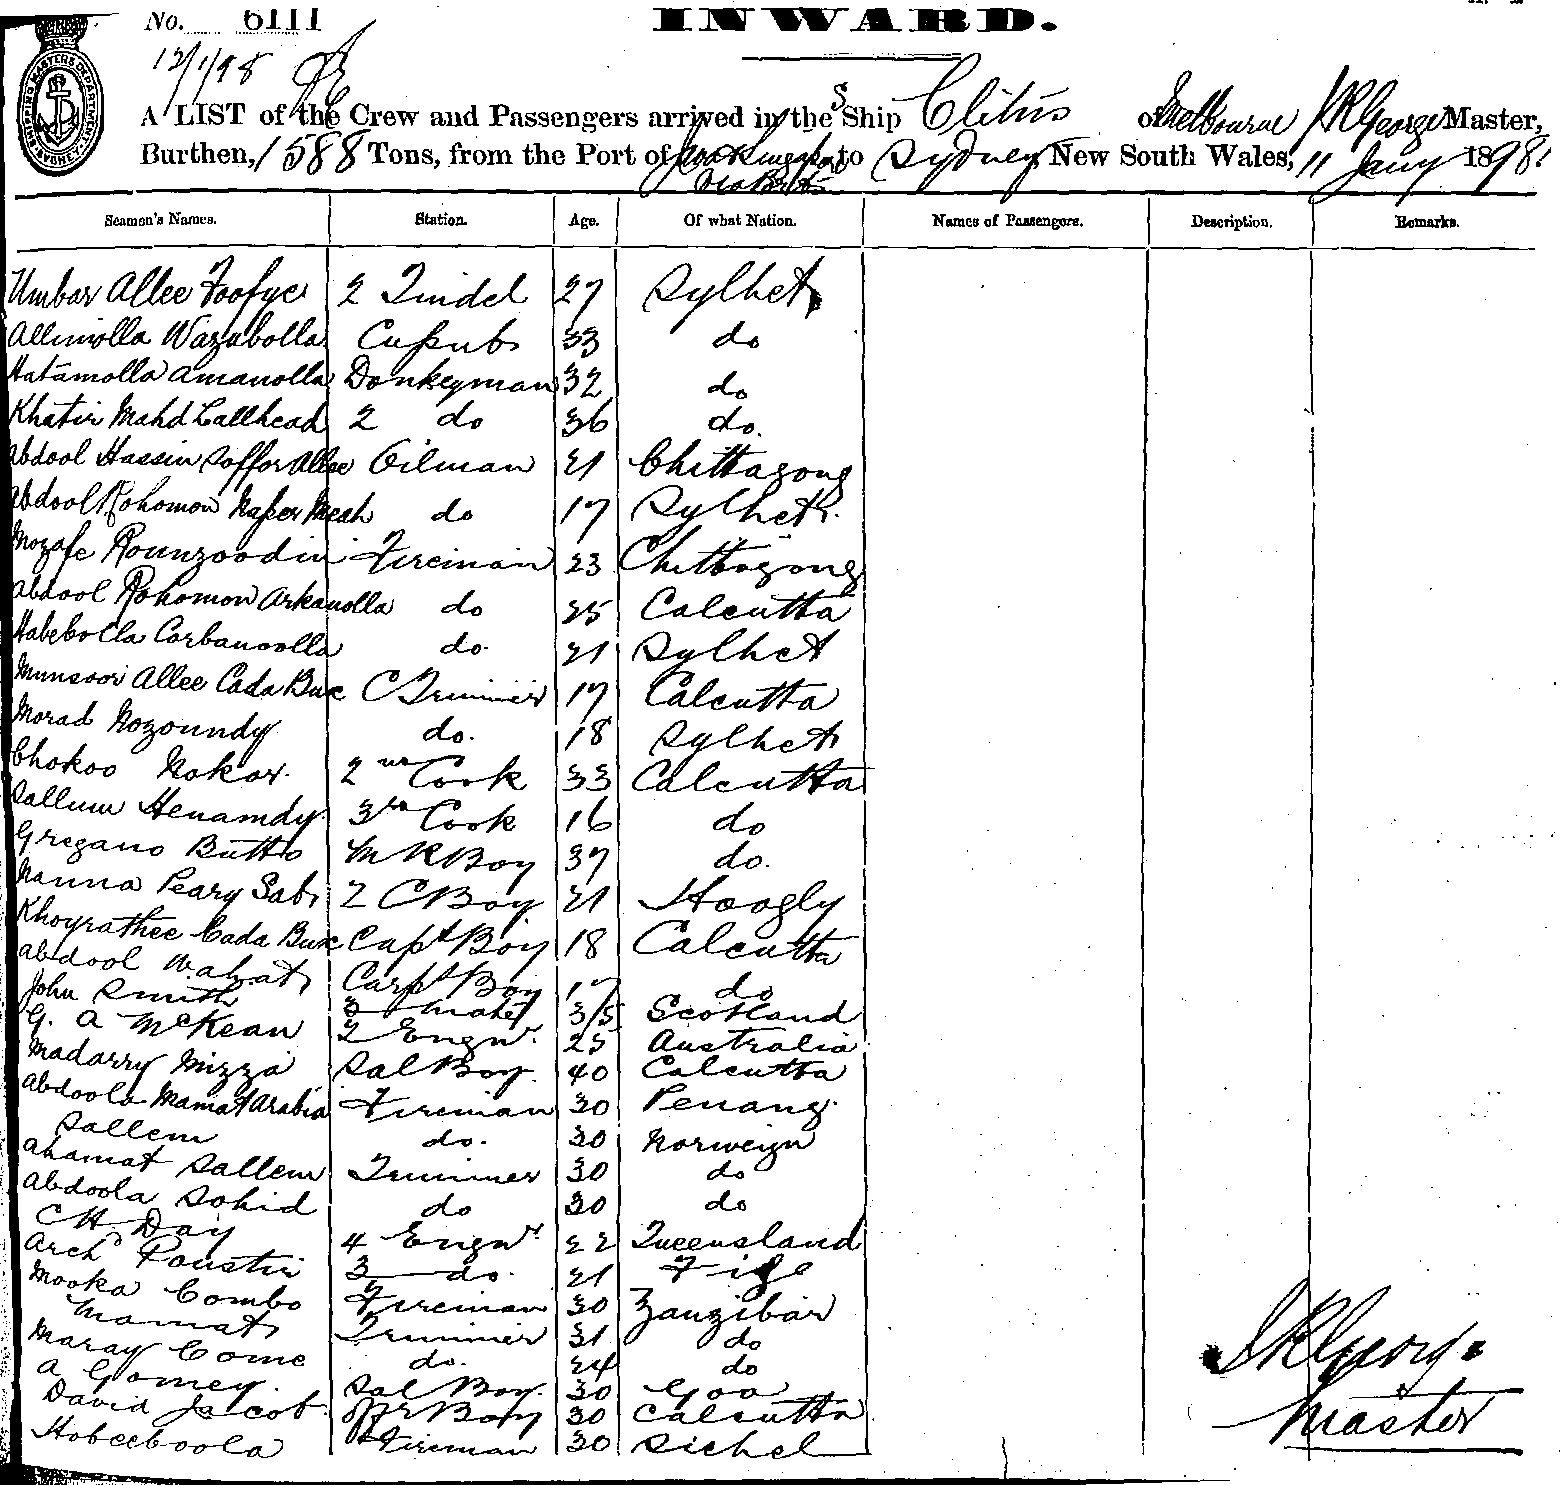 No. 6111 INWARD.
12/1/98
A LIST of the Crew and Passengers arrived in the S Ship Clitus of Melbourne J R George Master,
Burthen, 1588 Tons, from the Port of to Sydney New South Wales, 11 Jany 1898.
Seamen's Names. Station. Age. Of what Nation. Names of Passengers. Description. Remarks.
Umbar Allee Foofye 2 Tindel 27 Sylhet
Allimolla Wazabolla 33 do
Hatamolla Amanolla Donkeyman 32 do
Khatir Mahd Lallhead 2 do 36 do.
Abdool Hassin Soffor Allee Oilman 21 Chittagong
Abdool Rohomon Naper Meah do 17 Sylhet
Mozafe Rounzoodin Fireman 23 Chittagong
Abdool Rohomon Arkanolla do 25 Calcutta
Habebolla Corbanoolla do. 21 Sylhet
Munsoor Allee Cada Bux C Trimmer 17 Calcutta
Morad Nozoundy do. 18 Sylhet
Chokoo Nokor. 2nd Cook 33 Calcutta
Sallum Henamdy 3rd Cook 16 do
Gregano Butto M R Boy 37 do.
Nanna Peary Sab 2 C Boy 21 Hoogly
Khoyrathee Cada Bux Capt Boy 18 Calcutta
Abdool Wahab Carpt Boy 17 do
John Smith 3 Mate 35 Scotland
G. A McKean 2 Engnr. 25 Australia
Madarry Mizza Sal Boy. 40 Calcutta
Abdoola Mamat Arabia Fireman 30 Penang.
Sallem do. 30 Norweign
Ahamat Sallem Trimmer 30 do
Abdoola Sohid do 30 do
C H Day 4 Engnr. 22 Queensland
Archd 3 do. 21 Figi
Mooka Combo Fireman 30 Zanzibar
Mamat Trimmer 31 do
Maray Come do. 24 do
A Gomey. Sal Boy. 30 Goa
David Jacob Boy 30 Calcutta
Hobeeboola Fireman 30 Sichel
J R George
Master